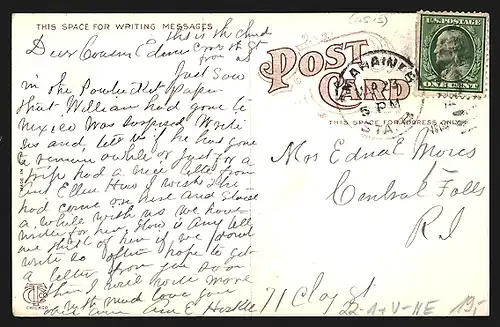 THIS SPACE FOR WRITING MESSAGES
this is the
Dear Cousin Edna
Just saw
in the Pawtucket Paper
that William had gone to
Mexico was surprised. Write
us and let us if he has gone
to remain awhile or just for a
trip had a nice letter from
Aunt Ellen I wish she
had come on here and staid
a while with us we have
written for her. How is
we think of her if we don't
write so often hope to get
a letter from you soon
then I will write more
with much love your
E Haskell
POST CARD
5 PM
STA.
U.S. POSTAGE
ONE CENT
THIS SPACE FOR ADDRESS ONLY
Mrs Edna E Mores
Central Falls
R I
71 Clay St
CHICAGO
22-A+V-NE
19,-